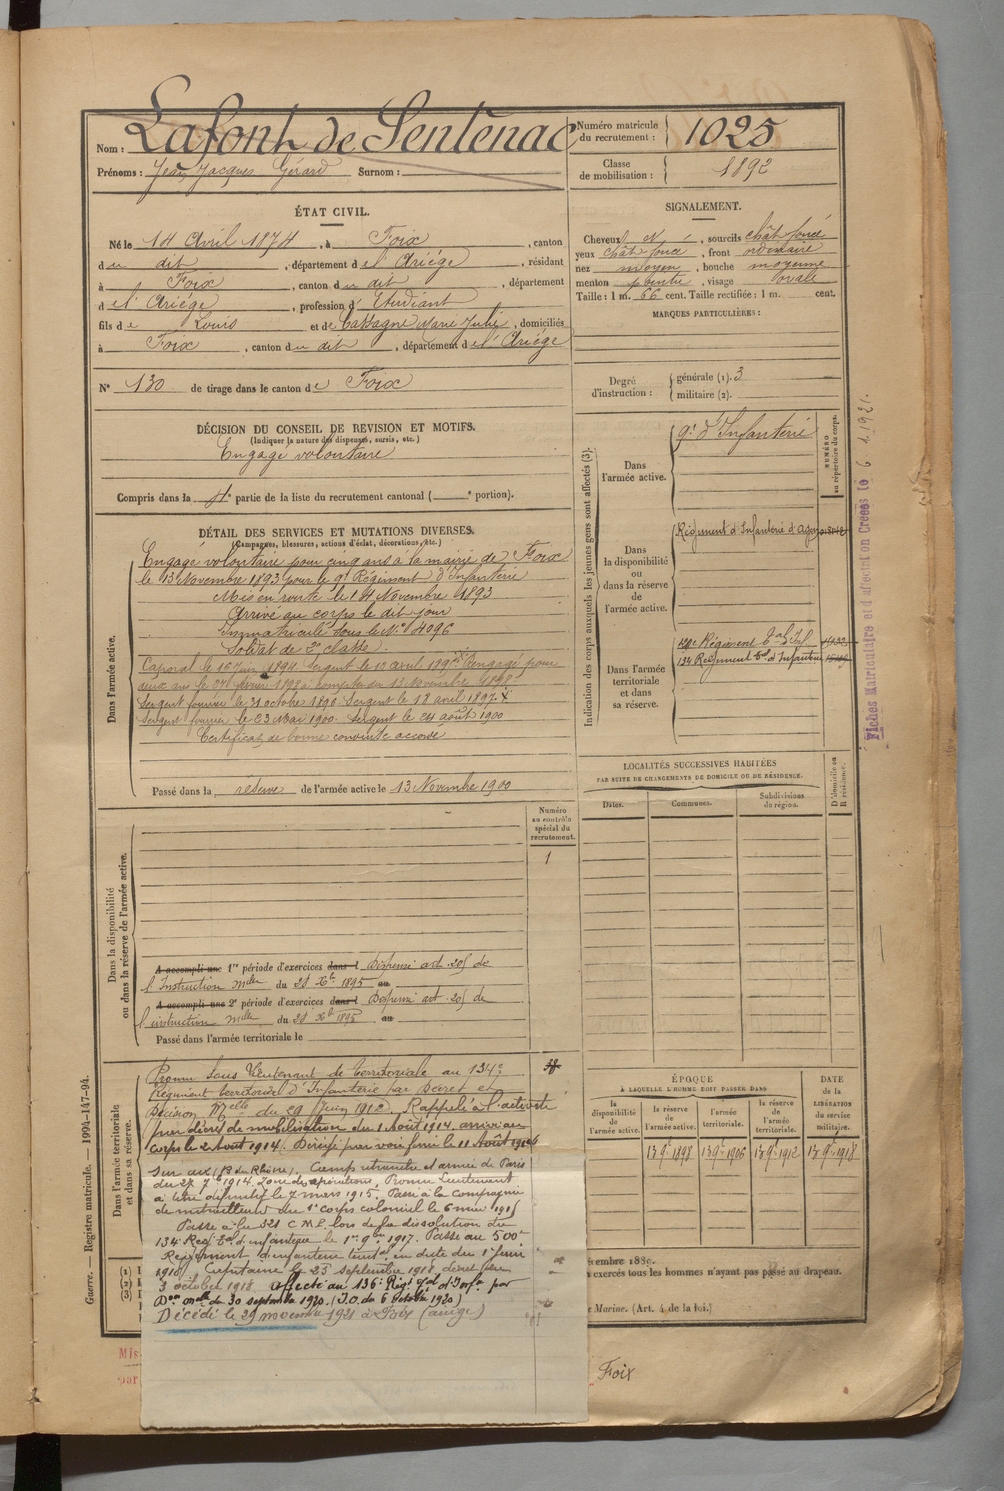 Nom : Lafont de Sentenac
Prénoms : Jean Jacques Gérard Surnom :
Numéro matricule du recrutement : 1025
Classe de mobilisation : 1892
ÉTAT CIVIL.
Né le 14 Avril 1874, à Foix, canton
du dit, département de l'Ariége, résidant
à Foix, canton du dit, département
de l'Ariége, profession d'Etudiant
fils de Louis et de Cassagne Marie Julie, domiciliés
à Foix, canton du dit, département de l'Ariége
N° 130 de tirage dans le canton de Foix
SIGNALEMENT.
Cheveux N, sourcils chât foncé
yeux chât foncé, front ordinaire
nez moyen, bouche moyenne
menton pointu, visage ovale
Taille : 1 m. 66 cent. Taille rectifiée : 1 m. cent.
MARQUES PARTICULIÈRES :
Degré d'instruction : générale (1). 3
militaire (2).
DÉCISION DU CONSEIL DE REVISION ET MOTIFS.
(Indiquer la nature des dispenses, sursis, etc.)
Engagé volontaire
Compris dans la 4e partie de la liste du recrutement cantonal ( e portion).
DÉTAIL DES SERVICES ET MUTATIONS DIVERSES.
(Campagnes, blessures, actions d'éclat, décorations, etc.)
Dans l'armée active.
Engagé volontaire pour cinq ans à la mairie de Foix
le 13 Novembre 1893 pour le 9e Régiment d'Infanterie
Mis en route le 14 Novembre 1893
Arrivé au corps le dit jour
Immatriculé sous le N° 4096
Soldat de 2e classe.
Caporal le 16 Juin 1894. Sergent le 10 avril 1897. Rengagé pour
deux ans le 24 février 1898 à compter du 13 Novembre 1898
Sergent fourrier le 21 octobre 1896 Sergent le 18 avril 1897 X
Sergent fourrier le 23 Mai 1900. Sergent le 24 août 1900
Certificat de bonne conduite accordé
Passé dans la réserve de l'armée active le 13 Novembre 1900
Indication des corps auxquels les jeunes gens sont affectés (3).
NUMÉRO au répertoire du corps.
Dans l'armée active.
9e d'Infanterie
Dans la disponibilité ou dans la réserve de l'armée active.
Régiment d'Infanterie d'Agen
Dans l'armée territoriale et dans sa réserve.
129e Régiment Tal d'Inf.
134 Régiment Tal d'Infanterie
Fiches Matriculaire et d'affectation Créées le 6 1 1921.
LOCALITÉS SUCCESSIVES HABITÉES
PAR SUITE DE CHANGEMENTS DE DOMICILE OU DE RÉSIDENCE.
Dates. Communes. Subdivisions de région. D. domicile ou R. résidence.
Numéro au contrôle spécial du recrutement.
1
Dans la disponibilité ou dans la réserve de l'armée active.
A accompli une 1re période d'exercices dans l Dispensé art. 205 de
l'Instruction melle du 28 Xbre 1895 au
A accompli une 2e période d'exercices dans l Dispensé art. 205 de
l'instruction melle du 28 Xbre 1895 au
Passé dans l'armée territoriale le
Dans l'armée territoriale et dans sa réserve.
Promu Sous Lieutenant de territoriale au 134e
Régiment territorial d'Infanterie par Décret et
Décision Melle du 29 Juin 1912. Rappelé à l'activité
par décret de mobilisation du 1 Août 1914. arrivé au
corps le 2 Août 1914.
38
Sur aux (B. du Rhône). Camp retranché et armée de Paris
du 27 7 1914. Zone des opérations. Promu Lieutenant
à titre définitif le 7 mars 1915. Passé à la compagnie
de mitrailleuses du 1er corps colonial le 6 mai 1915
Passé à la 321 C M P. lors de la dissolution du
134 Reg. Tal d'infanterie le 1er 9bre 1917. Passé au 500e
Regiment d'infanterie territ. en date du 1er
1918. Capitaine le 23 septembre 1918 décret du
3 octobre 1918. affecté au 136e Rég. Tal d'Infie par
Don melle du 30 septembre 1920. (J.O. du 6 octobre 1920)
Décédé le 29 novembre 1921 à Foix (ariège)
ÉPOQUE
À LAQUELLE L'HOMME DOIT PASSER DANS
la disponibilité de l'armée active.
la réserve de l'armée active.
l'armée territoriale.
la réserve de l'armée territoriale.
DATE de la LIBÉRATION du service militaire.
13 9e 1898 13 9e 1906 13 9e 1912 13 9e 1918
(1)
(2)
(3)
écembre 1889.
exercés tous les hommes n'ayant pas passé au drapeau.
e Marine. (Art. 4 de la loi.)
Mis
par
Foix
Guerre. — Registre matricule. — 1994-147-94.